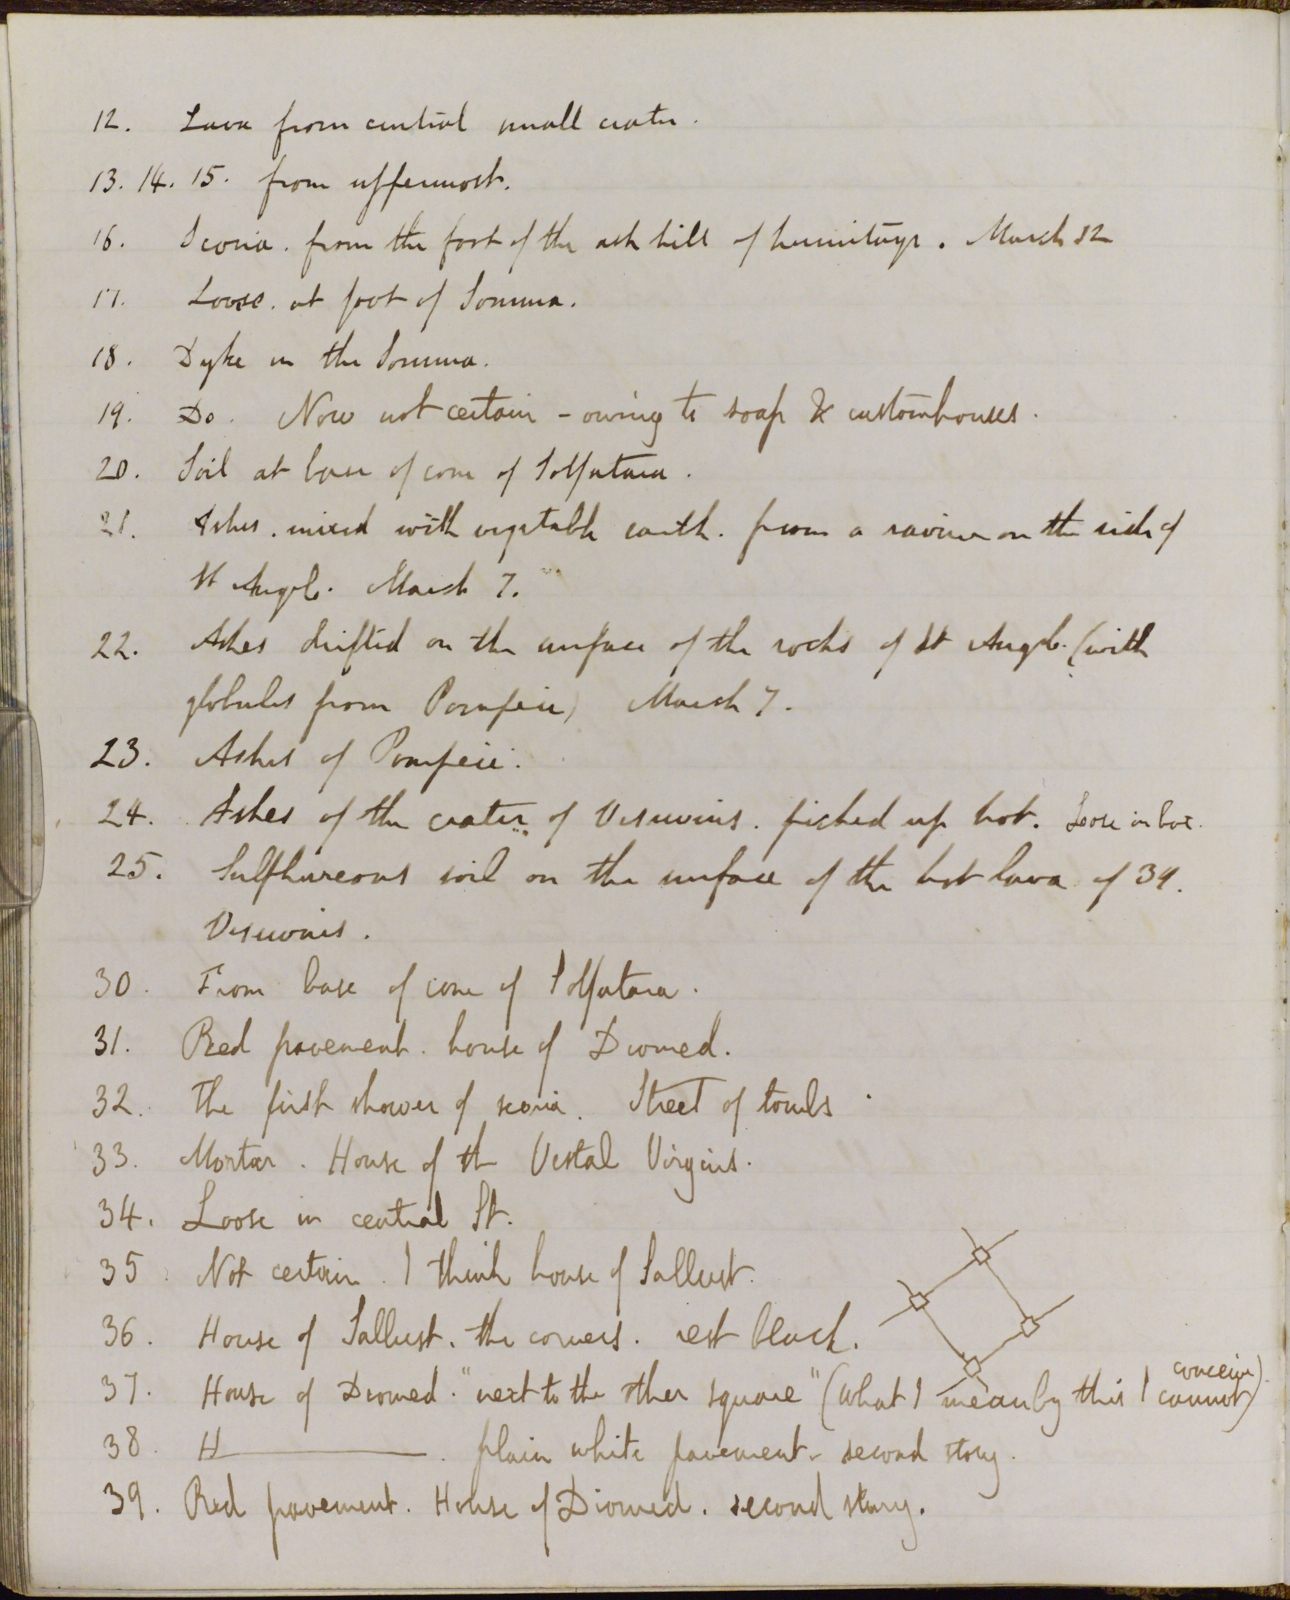 12. Lava from central small crater.
13. 14. 15. from uppermost.
16. Scoria. from the foot of the ash hill of hermitage. March 12
17. Loose. at foot of Somma.
18. Dyke in the Somma.
19. Do. Now not certain - owing to soap & customhouses.
20. Soil at base of cone of Solfatara.
21. Ashes. mixed with vegetable earth. from a ravine on the side of
St Angelo. March 7.
22. Ashes drifted on the surface of the rocks of St Angelo. (with
globules from Pompeii) March 7.
23. Ashes of Pompeii.
24. Ashes of the crater of Vesuvius. picked up hot. Loose in box.
25. Sulphureous soil on the surface of the hot lava of 34.
Vesuvius.
30. From base of cone of Solfatara.
31. Red pavement. house of Diomed.
32. The first shower of scoria. Street of tombs.
33. Mortar. House of the Vestal Virgins.
34. Loose in central St.
35. Not certain. I think house of Sallust.
36. House of Sallust. the corners. rest black.
37. House of Diomed. "next to the other square" (What I mean by this I cannot conceive).
38. H———. plain white pavement - second story.
39. Red pavement. House of Diomed. second story.